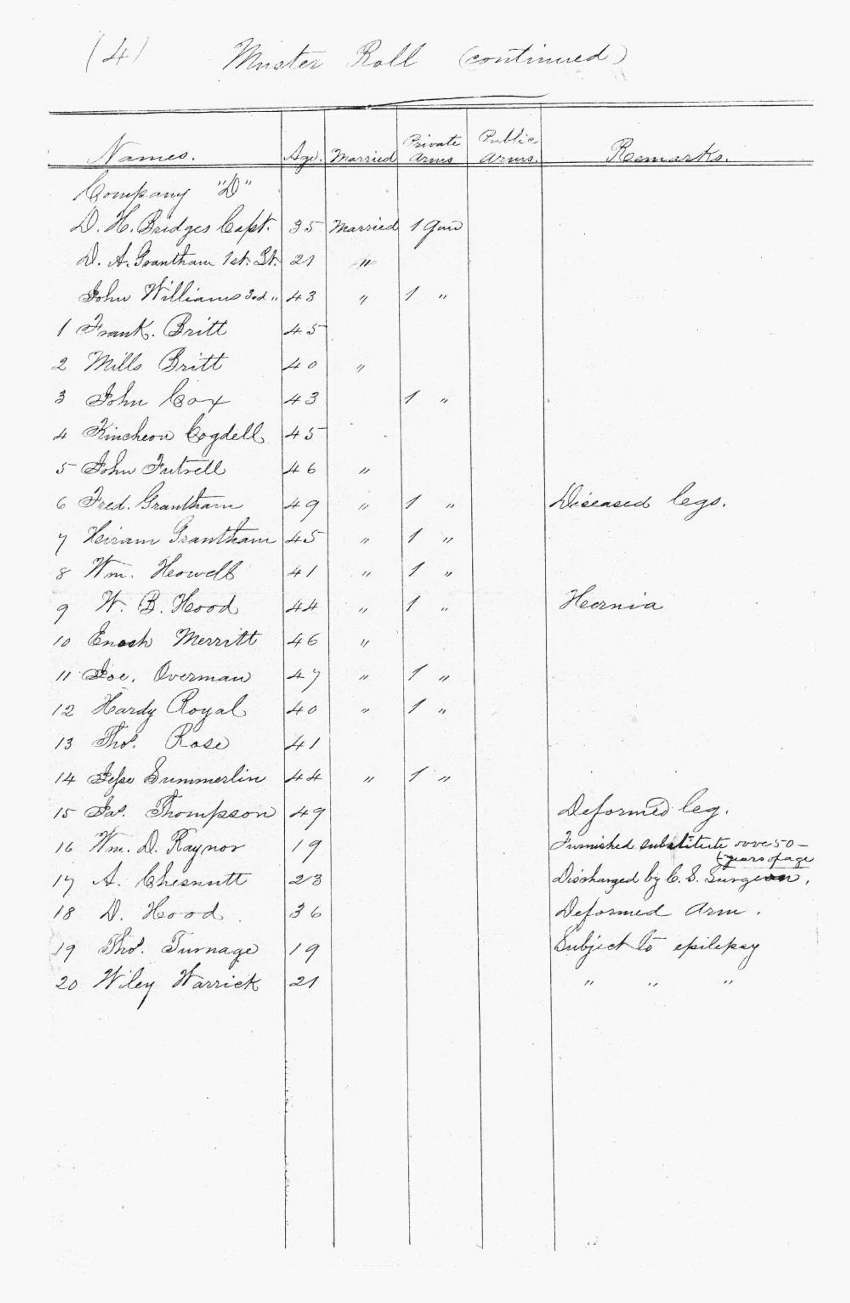 (4) Muster Roll (continued)
Names. Age. Married Private Arms Public Arms. Remarks.
Company "D"
D. H. Bridges Capt. 35 Married 1 Gun
D. A. Grantham 1st. Lt. 21 "
John Williams 3rd " 43 " 1 "
1 Frank. Britt 45
2 Mills Britt 40 "
3 John Cox 43 1 "
4 Kincheon Cogdell 45
5 John Futrell 46 "
6 Fred. Grantham 49 " 1 " Diseased legs.
7 Heiram Grantham 45 " 1 "
8 Wm. Howell 41 " 1 "
9 W. B. Hood 44 " 1 " Hernia
10 Enoch Merritt 46 "
11 Joe. Overman 47 " 1 "
12 Hardy Royal 40 " 1 "
13 Thos. Rose 41
14 Jesse Summerlin 44 " 1 "
15 Jas. Thompson 49 Deformed leg.
16 Wm. D. Raynor 19 Furnished substitute over 50 -
years of age
17 A. Chesnutt 23 Discharged by C. S. Surgeon.
18 D. Hood 36 Deformed Arm.
19 Thos. Turnage 19 Subject to epilepsy
20 Wiley Warrick 21 " " "